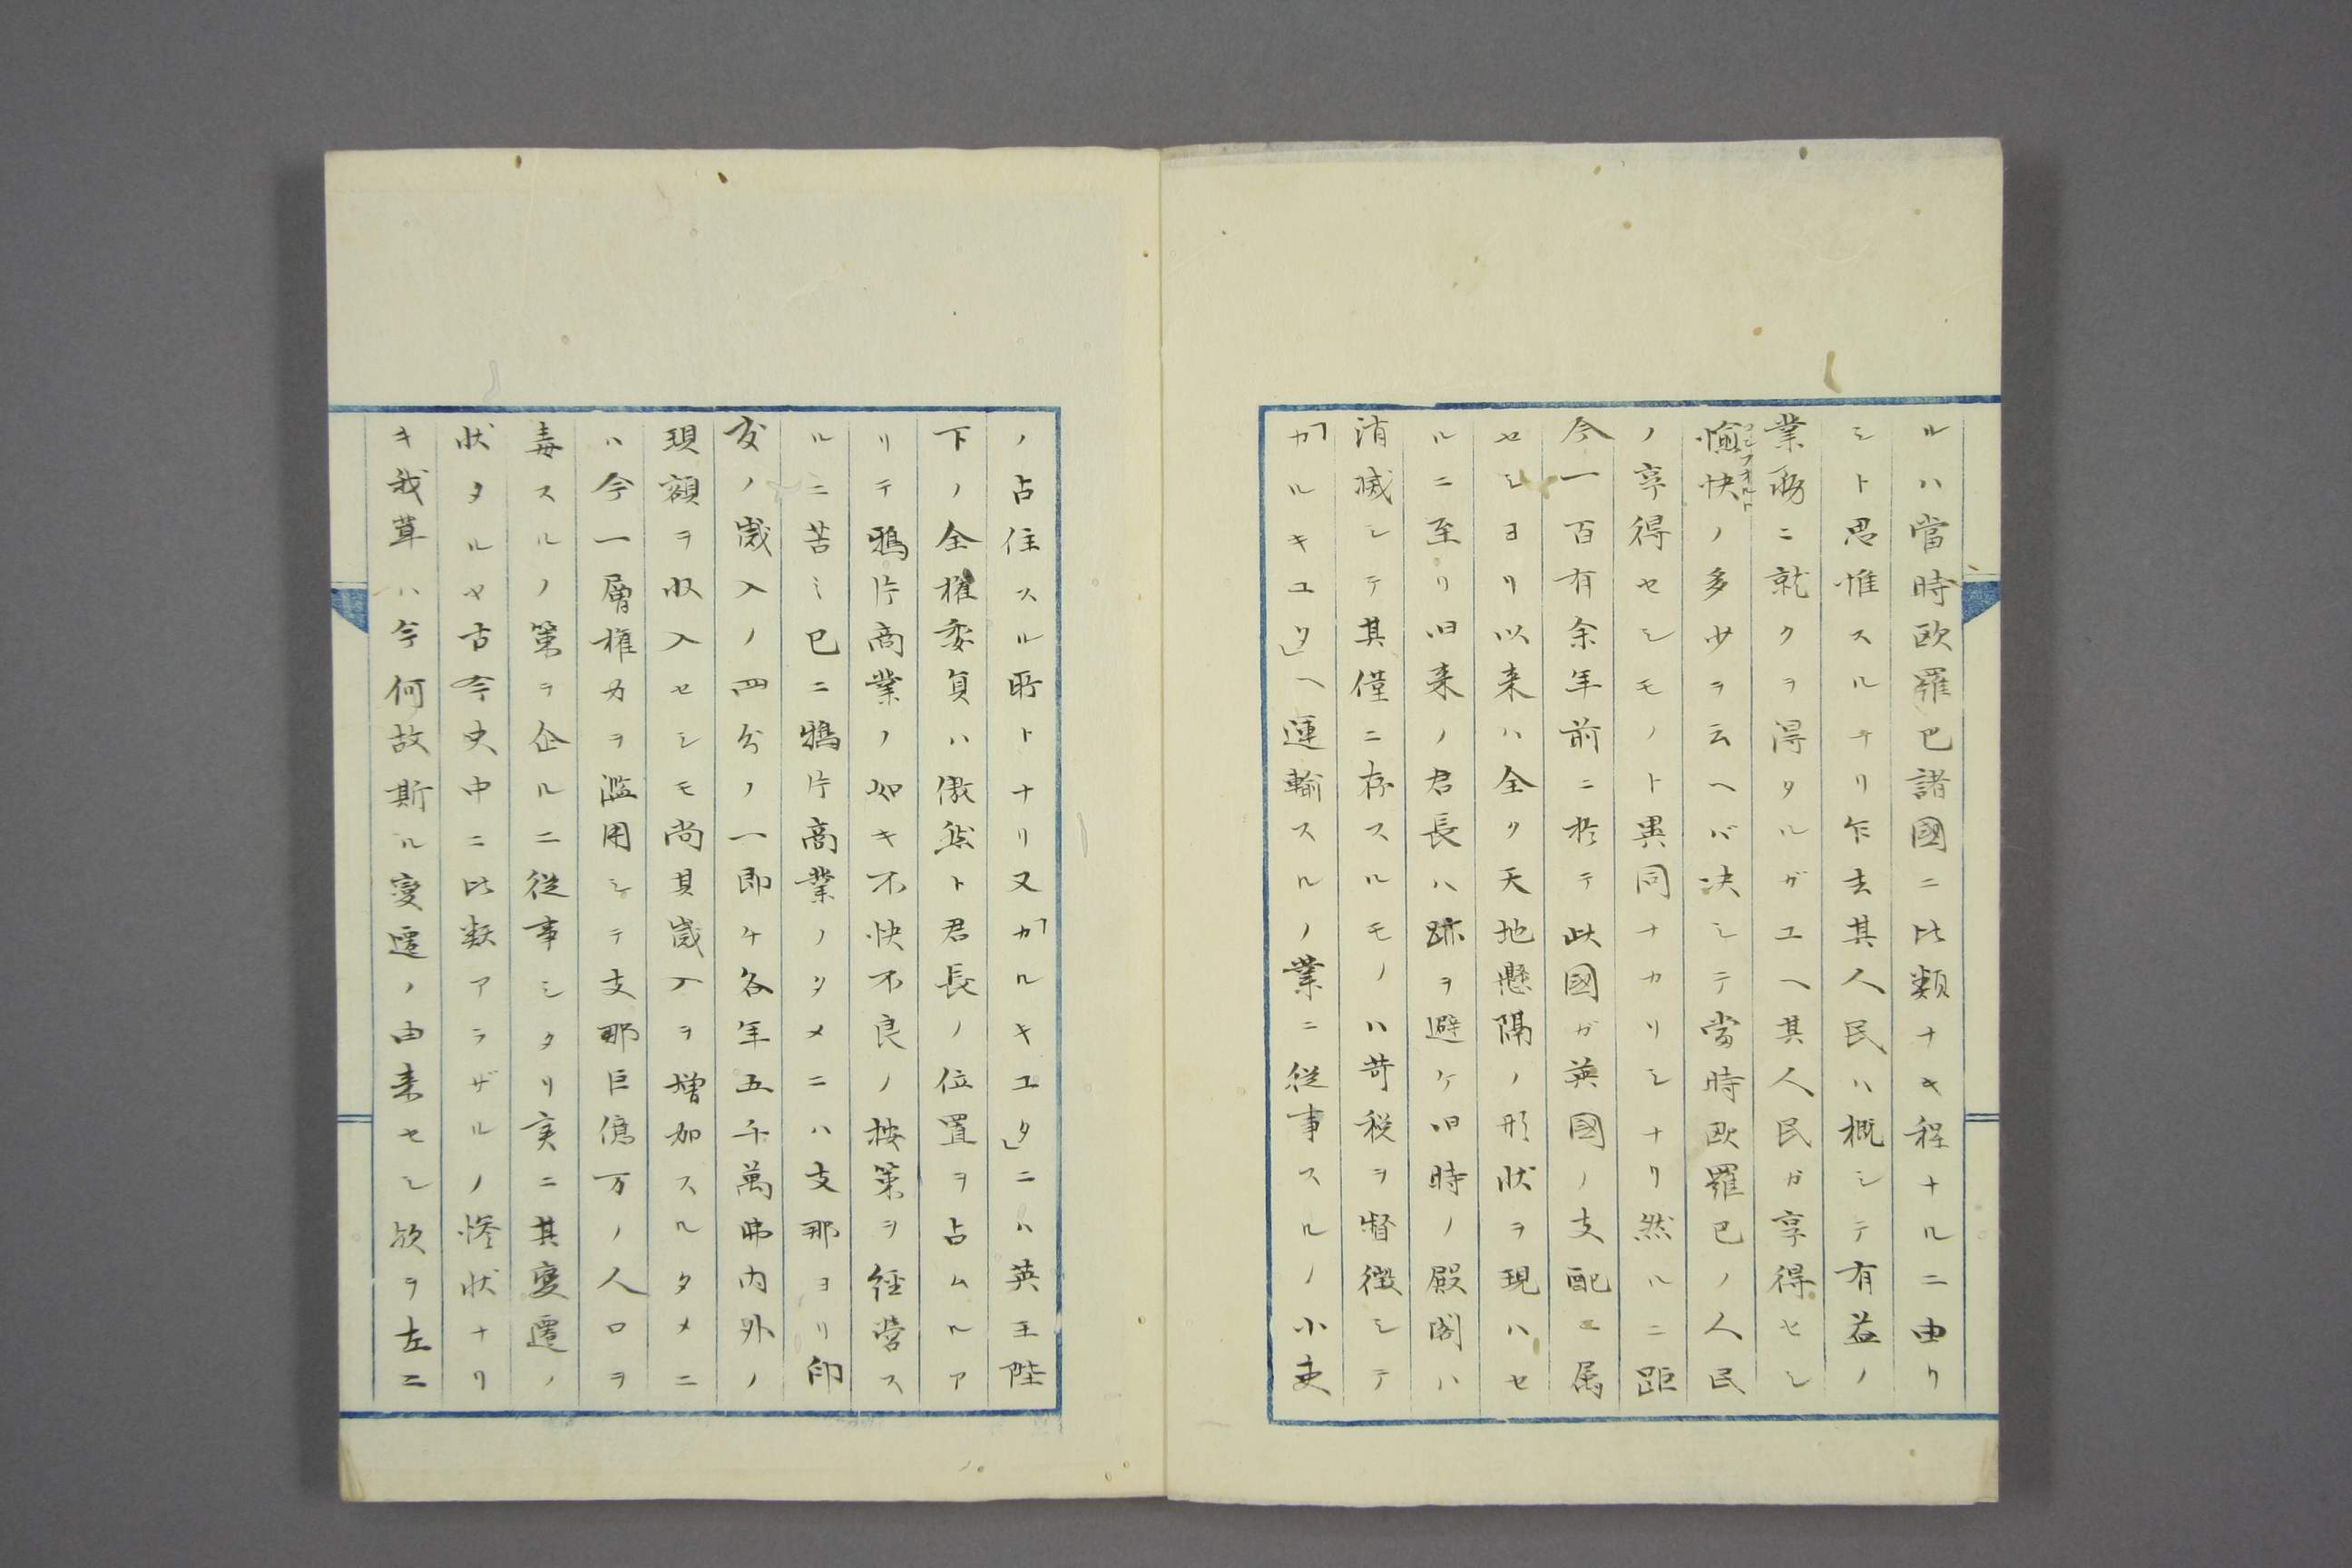 ルハ當時歐羅巴諸國ニ比類ナキ程ナルニ由リ
シト思惟スルナリ乍去其人民ハ概シテ有益ノ
業務ニ就クヲ得タルガユヘ其人民ガ享得セシ
愉快ノ多少ヲ云ヘバ决シテ當時歐羅巴ノ人民
コンフオルト
ノ享得セシモノト異同ナカリシナリ然ルニ距
今一百有余年前ニ於テ此國ガ英國ノ支配ニ属
セシヨリ以来ハ全ク天地懸隔ノ形状ヲ現ハセ
ルニ至リ旧来ノ君長ハ跡ヲ避ケ旧時ノ殿閣ハ
消滅シテ其僅ニ存スルモノハ苛税ヲ督徴シテ
「カルキユタ」ヘ運輸スルノ業ニ従事スルノ小吏
ノ占住スル所トナリ又「カルキユタ」ニハ英王陛
下ノ全権委員ハ傲然ト君長ノ位置ヲ占ムルア
リテ鴉片商業ノ如キ不快不良ノ按策ヲ經営ス
ルニ苦ミ已ニ鴉片商業ノタメニハ支那ヨリ印
度ノ歳入ノ四分ノ一即ケ各年五千萬弗内外ノ
現額ヲ収入セシモ尚其歳入ヲ増加スルタメニ
ハ今一層権力ヲ濫用シテ支那巨億万ノ人口ヲ
毒スルノ策ヲ企ルニ従事シタリ実ニ其變遷ノ
状タルヤ古今史中ニ比類アラザルノ惨状ナリ
キ我草ハ今何故斯ル變遷ノ由来セシ欤ヲ左ニ